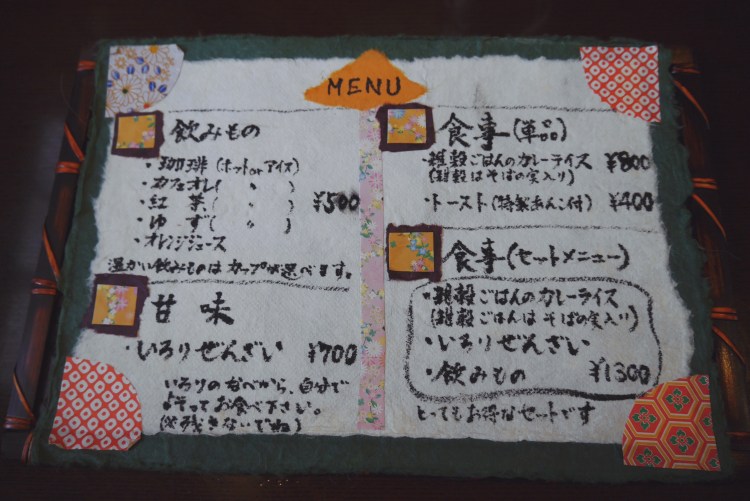 MENU
飲みもの
・珈琲(ホットorアイス)
・カフェオレ(〃)
・紅茶(〃) ¥500
・ゆず(〃)
・オレンジジュース
温かい飲みものはカップが選べます。
甘味
・いろりぜんざい ¥700
いろりのなべから、自分で
よそってお食べ下さい。
(※残さないでね)
食事(単品)
・雑穀ごはんのカレーライス ¥800
(雑穀はそばの実入り)
・トースト(特製あんこ付) ¥400
食事(セットメニュー)
・雑穀ごはんのカレーライス
(雑穀ごはんはそばの実入り)
・いろりぜんざい
・飲みもの ¥1300
とってもお得なセットです